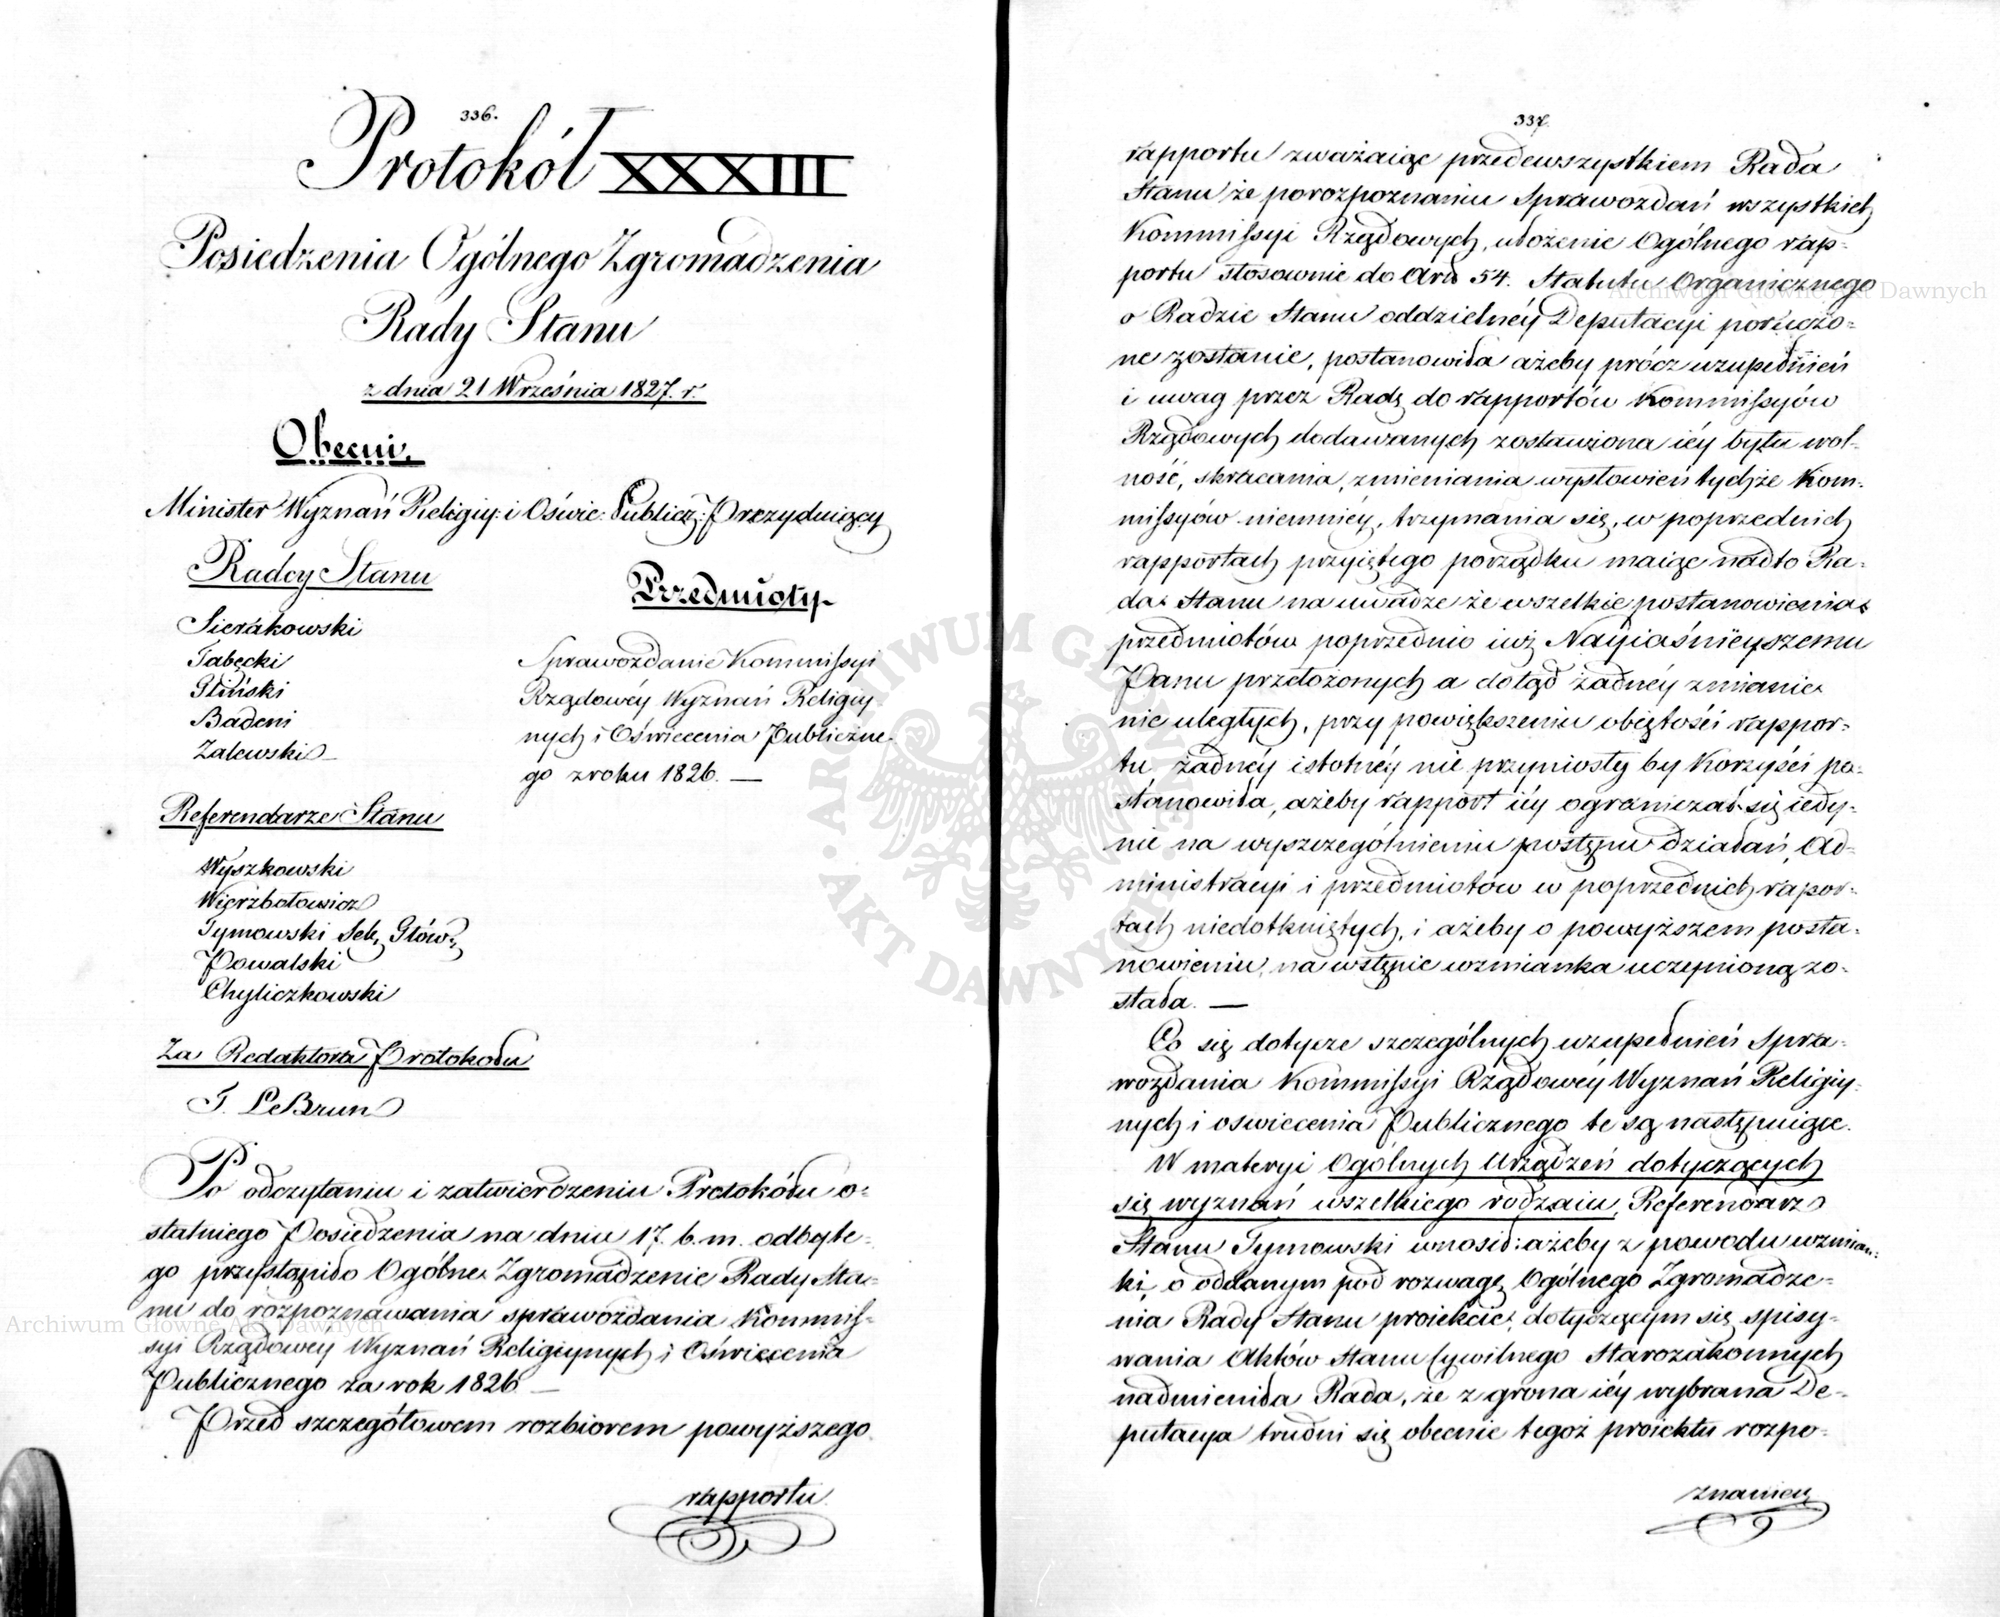 336.
Protokół XXXIII
Posiedzenia Ogólnego Zgromadzenia
Rady Stanu
z dnia 21 Września 1827. r.
Obecni.
Minister Wyznań Religiy: i Oświe: Publicz: Prezyduiący
Radcy Stanu
Sierakowski
Tabęcki
Gliński
Badeni
Zalewski
Referendarze Stanu
Wyszkowski
Wierzbołowicz
Tymowski Sek. Głów:
Powalski
Chyliczkowski
Za Redaktora Protokołu
T. LeBrun
Przedmioty
Sprawozdanie Kommissyi
Rządowéy Wyznań Religiy-
nych i Oświecenia Publiczne-
go z roku 1826. —
Po odczytaniu i zatwierdzeniu Protokółu o-
statniego Posiedzenia na dniu 17. b. m. odbyte-
go przystąpiło Ogólne Zgromadzenie Rady Sta-
nu do rozpoznawania sprawozdania Kommis-
syi Rządowey Wyznań Religiynych i Oświecenia
Publicznego za rok 1826 —
Przed szczegółowem rozbiorem powyższego
rapportu
337.
rapportu zważaiąc przedewszystkiem Rada
Stanu że po rozpoznaniu Sprawozdań wszystkich
Kommissyi Rządowych, ułożenie Ogólnego rap-
portu stosownie do Art. 54. Statutu Organicznego
o Radzie Stanu oddzielnéy Deputacyi poruczo-
ne zostanie, postanowiła ażeby prócz uzupełnień
i uwag przez Radę do rapportów Kommissyów
Rządowych dodawanych zostawiona iéy była wol-
ność, skracania, zmieniania wysłowień tychże Kom-
missyów niemniéy, trzymania się, w poprzednich
rapportach przyiętego porządku maiąc nadto Ra-
da Stanu na uwadze że wszelkie postanowienia
przedmiotów poprzednio iuż Nayiaśnieyszemu
Panu przełożonych a dotąd żadnéy zmianie
nie uległych, przy powiększeniu obiętości rappor-
tu, żadnéy istotnéy nie przyniosły by Korzyści po-
stanowiła, ażeby rapport iéy ograniczał się iedy-
nie na wyszczególnieniu postępu działań, Ad-
ministracyi i przedmiotów w poprzednich rapor-
tach niedotkniętych, i ażeby o powyższem posta-
nowieniu, na wstępie wzmianka uczynioną zo-
stała. —
Co się dotycze szczególnych uzupełnień Spra-
wozdania Kommissyi Rządowéy Wyznań Religiy-
nych i oswiecenia Publicznego te są następuiące.
W materyi Ogólnych Urządzeń dotyczących
się wyznań wszelkiego rodzaiu, Referendarz
Stanu Tymowski wnosił: ażeby z powodu wzmian-
ki, o oddanym pod rozwagę Ogólnego Zgromadze-
nia Rady Stanu proiekcie, dotyczącym się spisy-
wania Aktów Stanu Cywilnego Starozakonnych
nadmieniła Rada, że z grona iéy wybrana De-
putacya trudni się obecnie tegoż proiektu rozpo-
znaniem
Archiwum Główne Akt Dawnych
Archiwum Główne Akt Dawnych
ARCHIWUM GŁÓWNE · AKT DAWNYCH ·